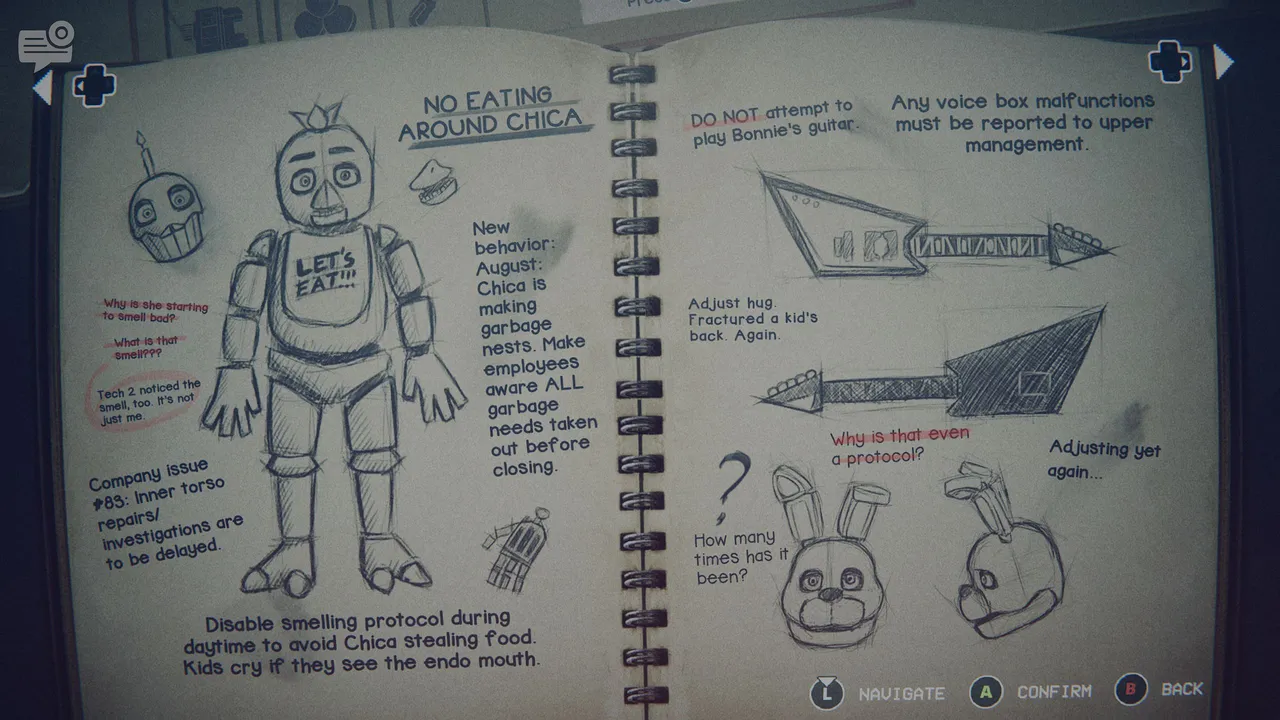 NO EATING
AROUND CHICA
LET'S
EAT!!!
New
behavior:
August:
Chica is
making
garbage
nests. Make
employees
aware ALL
garbage
needs taken
out before
closing.
Why is she starting
to smell bad?
What is that
smell???
Tech 2 noticed the
smell, too. It's not
just me.
Company issue
#83: Inner torso
repairs/
investigations are
to be delayed.
Disable smelling protocol during
daytime to avoid Chica stealing food.
Kids cry if they see the endo mouth.
DO NOT attempt to
play Bonnie's guitar.
Any voice box malfunctions
must be reported to upper
management.
Adjust hug.
Fractured a kid's
back. Again.
Why is that even
a protocol?
Adjusting yet
again...
?
How many
times has it
been?
L NAVIGATE A CONFIRM B BACK